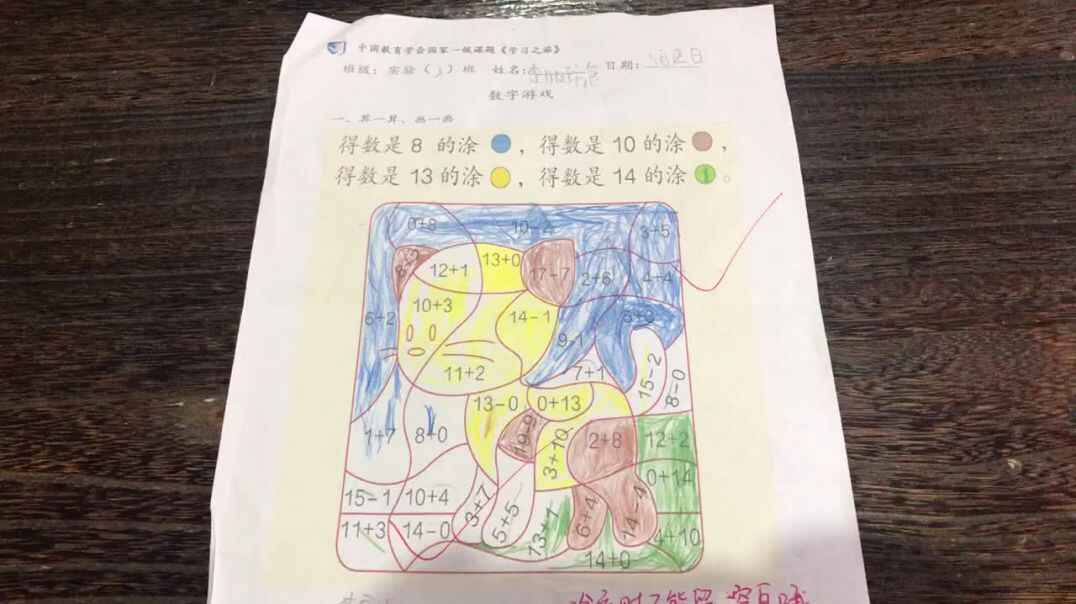 中国教育学会国家一级课题《学习之源》
班级：实验（）班 姓名： 日期：
数字游戏
一、算一算、画一画
得数是 8 的涂 ，得数是 10 的涂 ，
得数是 13 的涂 ，得数是 14 的涂 。
0+8 3+5
12+1 13+0 17-7 2+6 4+4
10+3 14-1
6+2 9-1
11+2 7+1 15-2 8-0
13-0 0+13
1+7 8+0 3+10 2+8 12+2
0+14
15-1 10+4 3+7 5+5 6+4 14-4
11+3 14-0 13+1 4+10
14+0